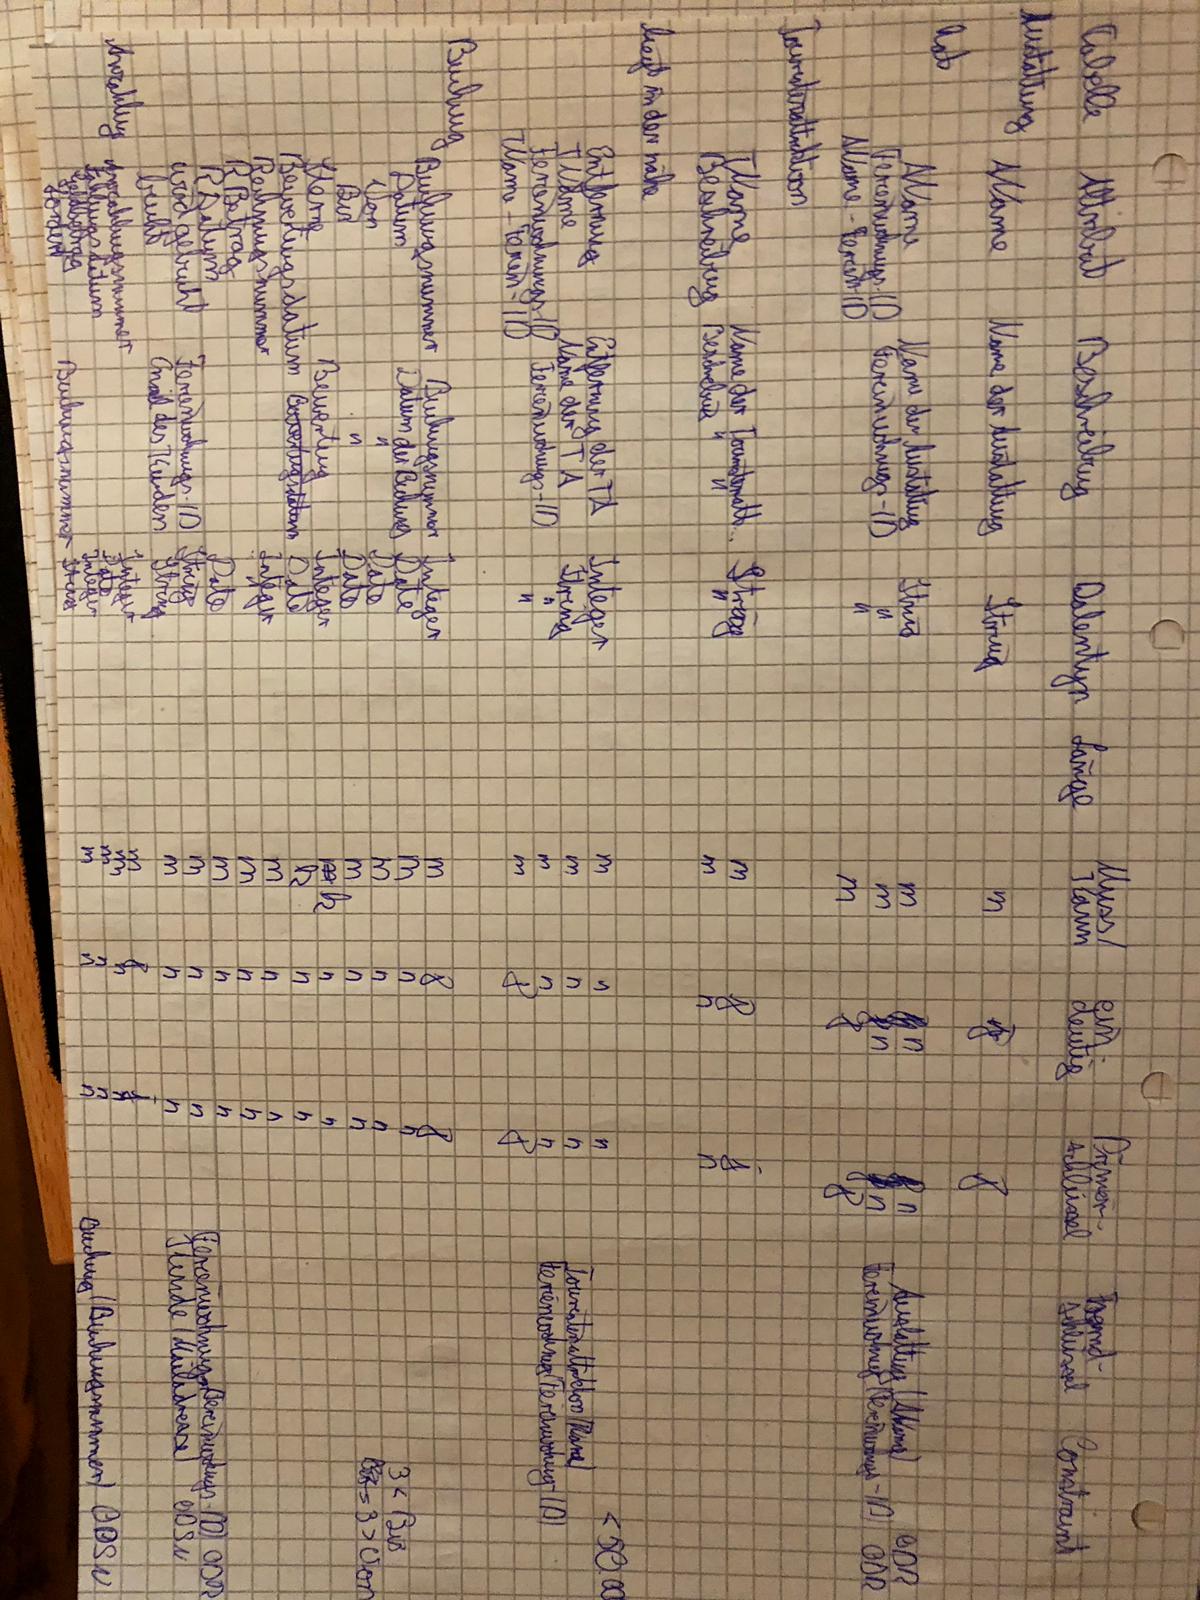 Tabelle Attribut Beschreibung Datentyp Länge Muss/Kann eindeutig Primärschlüssel Fremdschlüssel Constraint
Austattung AName Name der Austattung String m j j
hat AName Name der Austattung String m n n Austattung (AName) ODR
Ferienwohnungs-ID Ferienwohnungs-ID " m n n Ferienwohnung (Ferienwohnungs-ID) ODR
AName-Ferien-ID " m j j
Touristenattraktion TName Name der Touristenatt... String m j j
Beschreibung Beschreibung " " m n n
liegt in der nähe Entfernung Entfernung der TA Integer m n n < 50
TName Name der TA String m n n Touristenattraktion (Name)
Ferienwohnungs-ID Ferienwohnungs-ID " m n n Ferienwohnung (Ferienwohnungs-ID)
TName-Ferien-ID " m j j
Buchung Buchungsnummer Buchungsnummer Integer m j j
Datum Datum der Buchung Date m n n 3 < Bis
Von " Date m n n 3 > Von
Bis " Date m n n
Sterne Bewertung Integer k n n
Bewertungsdatum Bewertungsdatum Date k n n
Rechnungsnummer Integer m n n
R Betrag m n n
R Datum Date m n n
wird gebucht Ferienwohnungs-ID String m n n Ferienwohnung (Ferienwohnungs-ID) ODR
bucht Email des Kunden String m n n Kunde (Mailadresse) ODSN
Anzahlung Anzahlungsnummer Integer m j j
Zahlungsdatum Date m n n
Geldbetrag Integer m n n
Buchungsnummer String m n n Buchung (Buchungsnummer) ODSN